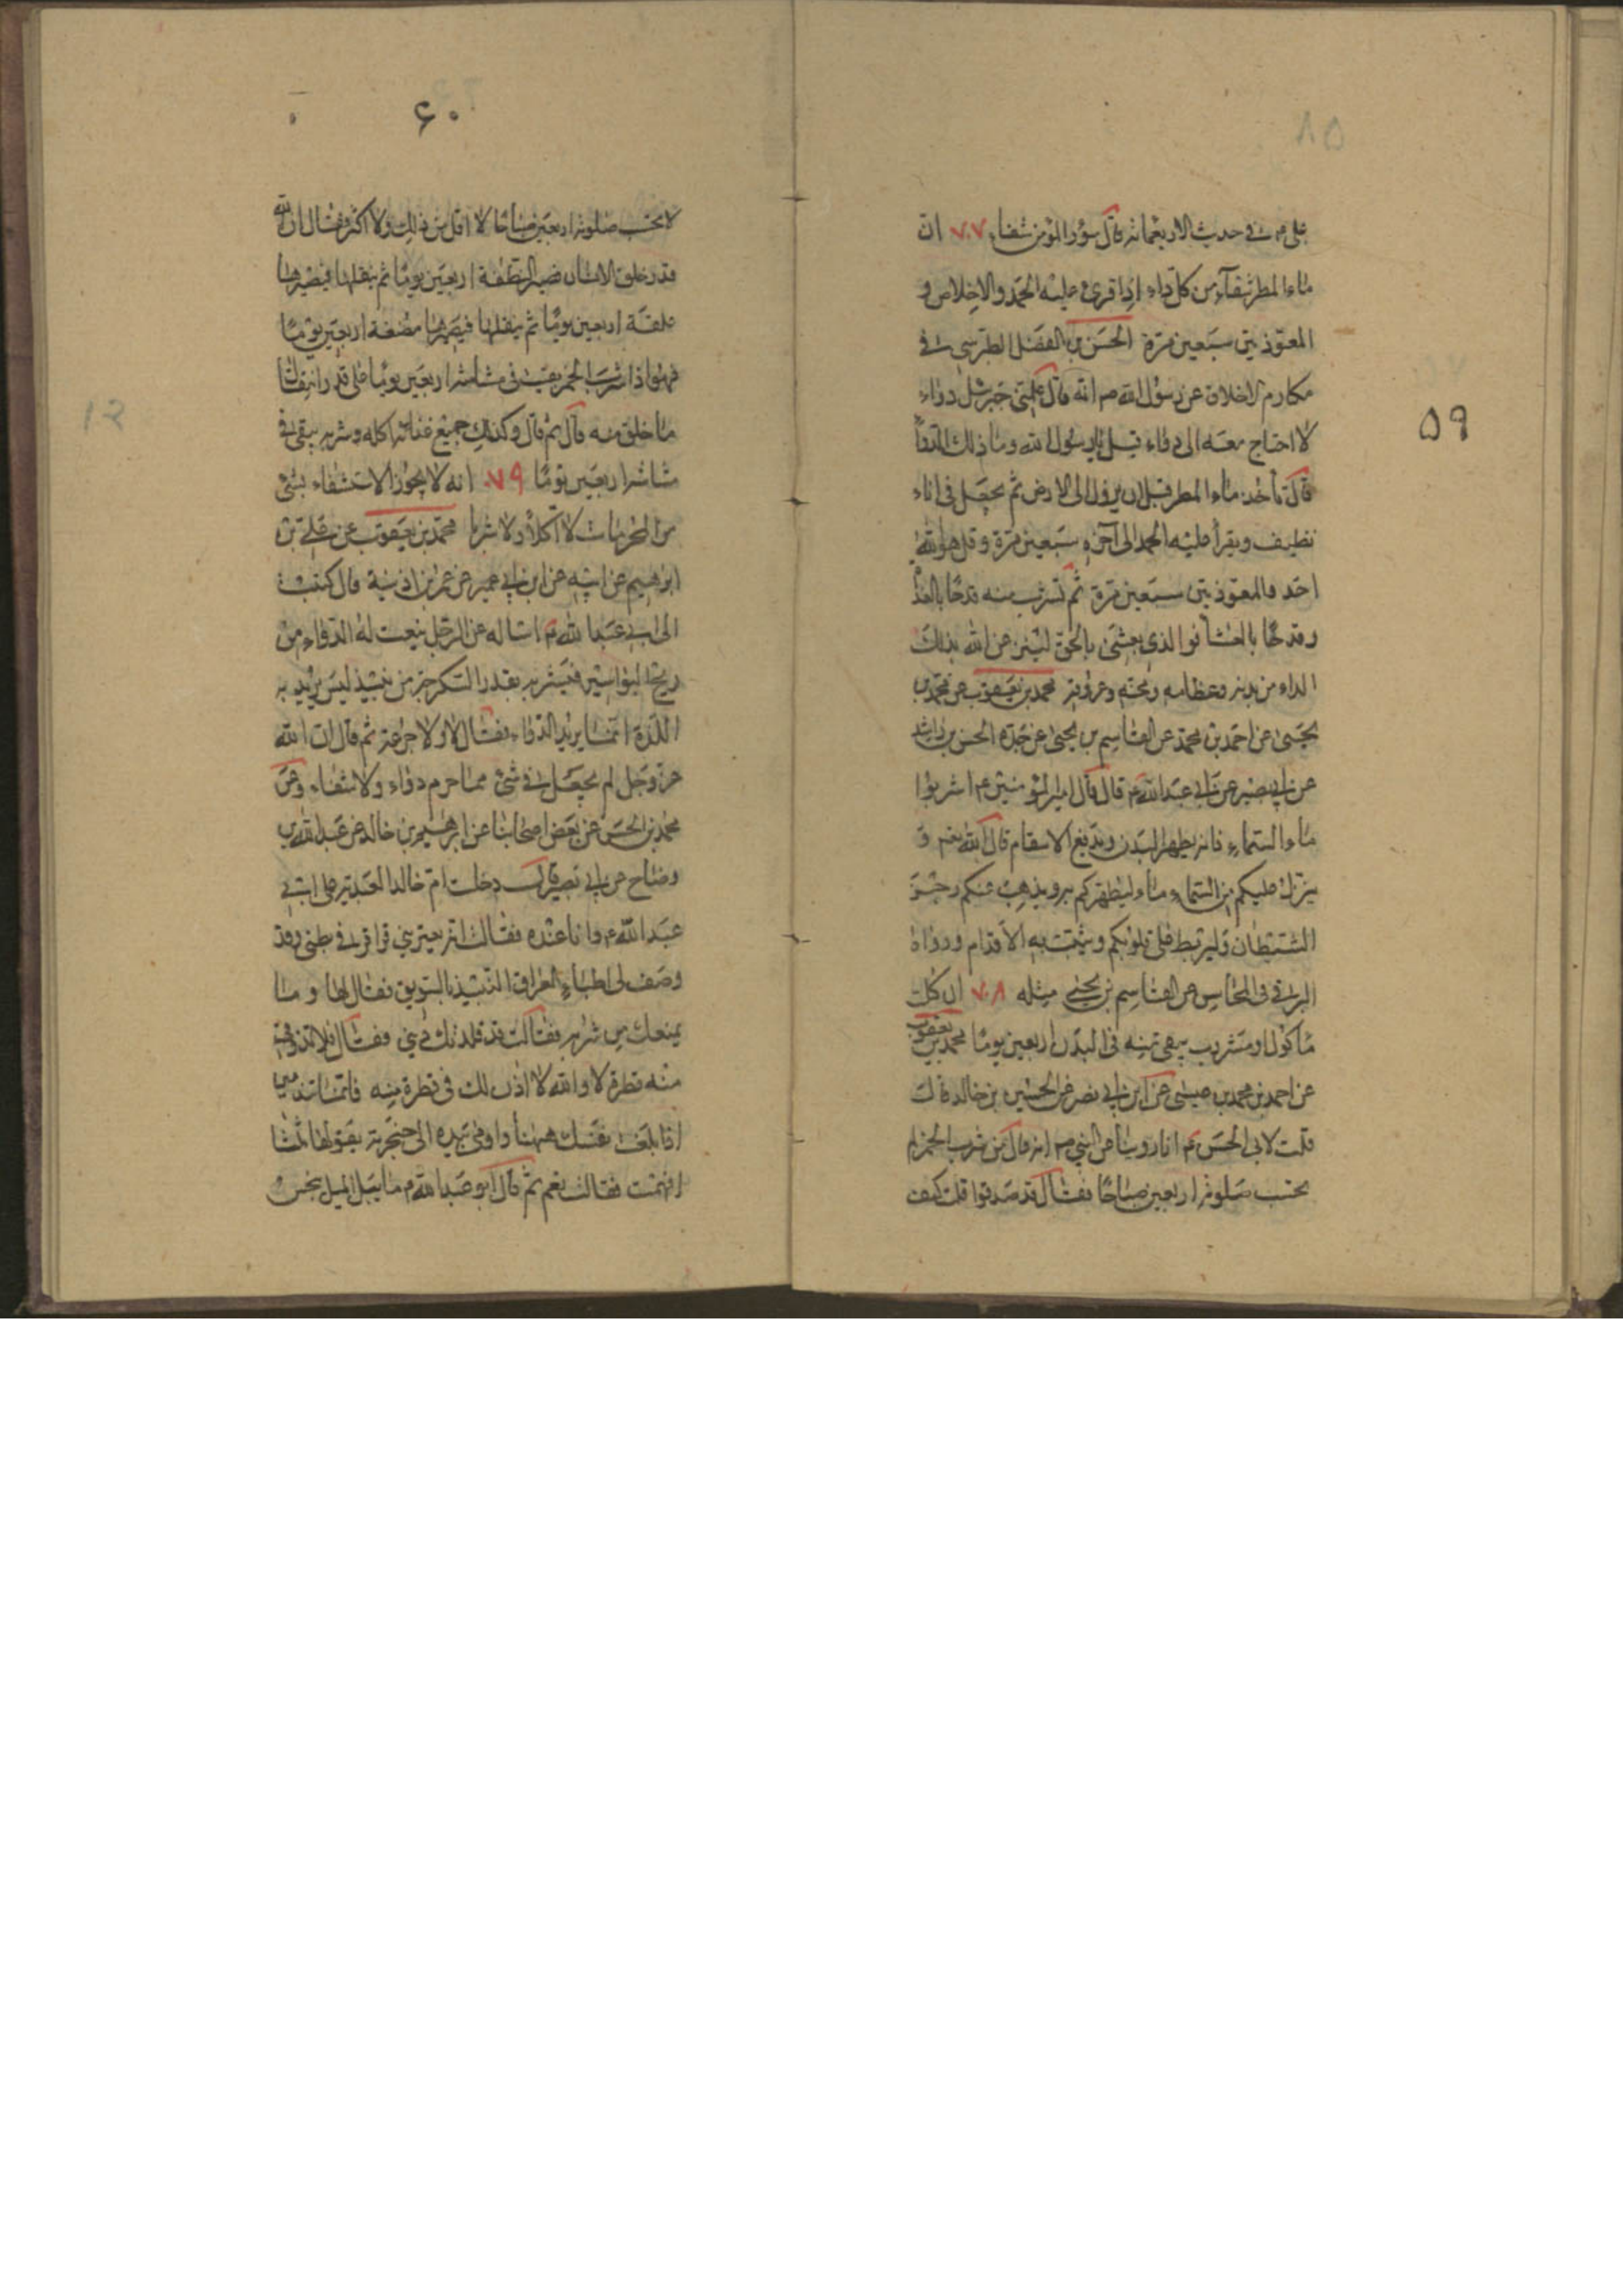 ۵۹
علي ع في حديث الاربعمائة قال سؤر المؤمن شفاء ٧٠٧ ان
ماء المطر شفآء من كل داء اذا قرئ عليه الحمد والاخلاص و
المعوذتين سبعين مرة الحسن بن الفضل الطبرسي في
مكارم الاخلاق عن رسول الله ص انه قال علمني جبرئيل دواء
لا احتاج معه الى دواء قيل يا رسول الله وما ذلك الدوآ
قال تأخذ ماء المطر قبل ان ينزل الى الارض ثم يجعل في اناء
نظيف ويقرأ عليه الحمد الى آخره سبعين مرة وقل هو الله
احد والمعوذتين سبعين مرة ثم تشرب منه قدحا بالغدا
وقدحا بالعشا فوالذي بعثني بالحق لينزعن الله بذلك
الداء من بدنه وعظامه ومخه وعروقه محمد بن يعقوب عن محمد بن
يحيى عن احمد بن محمد عن القاسم بن يحيى عن جده الحسن بن راشد
عن ابي بصير عن ابي عبد الله ع قال قال امير المؤمنين ع اشربوا
ماء السماء فانه يطهر البدن ويدفع الاسقام قال الله تعم و
ينزل عليكم من السماء ماء ليطهركم به ويذهب عنكم رجز
الشيطان وليربط على قلوبكم ويثبت به الاقدام ورواه
البرقي في المحاسن عن القاسم بن يحيى مثله ٧٠٨ ان كل
ماكول او مشروب يبقى منه في البدن اربعين يوما محمد بن يعقوب
عن احمد بن محمد بن عيسى عن ابن ابي نصر عن الحسين بن خالد قال
قلت لابي الحسن ع انا روينا عن النبي ص انه قال من شرب الخمر لم
يحتسب صلوته اربعين صباحا فقال قد صدقوا قلت كيف
۶۰
لا يحتسب صلوته اربعين صباحا لا اقل من ذلك ولا اكثر فقال ان الله
قدر خلق الانسان فصير النطفة اربعين يوما ثم ينقلها فيصيرها
علقة اربعين يوما ثم ينقلها فيصيرها مضغة اربعين يوما
فهو اذا شرب الخمر بقيت في مشاشه اربعين يوما على قدر انتقال
ما خلق منه قال ثم قال وكذلك جميع غذائه اكله وشربه يبقى في
مشاشه اربعين يوما ٧٠٩ انه لا يجوز الاستشفاء بشئ
من المحرمات لا اكلا ولا شربا محمد بن يعقوب عن علي بن
ابرهيم عن ابيه عن ابن ابي عمير عن عمر بن اذينة قال كتبت
الى ابي عبد الله ع اساله عن الرجل ينعت له الدواء من
ريح البواسير فيشربه بقدر السكرجة من نبيذ ليس يريد به
اللذة انما يريد الدواء فقال لا ولا جرعة ثم قال ان الله
عز وجل لم يجعل في شئ مما حرم دواء ولا شفاء وعن
محمد بن الحسن عن بعض اصحابنا عن ابرهيم بن خالد عن عبد الله بن
وضاح عن ابي بصير قال دخلت ام خالد العبدية على ابي
عبد الله ع وانا عنده فقالت انه يعتريني قراقر في بطني وقد
وصف لي اطباء العراق النبيذ بالسويق فقال لها وما
يمنعك من شربه فقالت قد قلدتك ديني فقال فلا تذوقي
منه قطرة لا والله لا اذن لك في قطرة منه فانما تندمين
اذا بلغت نفسك ههنا واومى بيده الى حنجرته يقولها ثلثا
افهمت فقالت نعم ثم قال ابو عبد الله ع ما يبل الميل ينجس